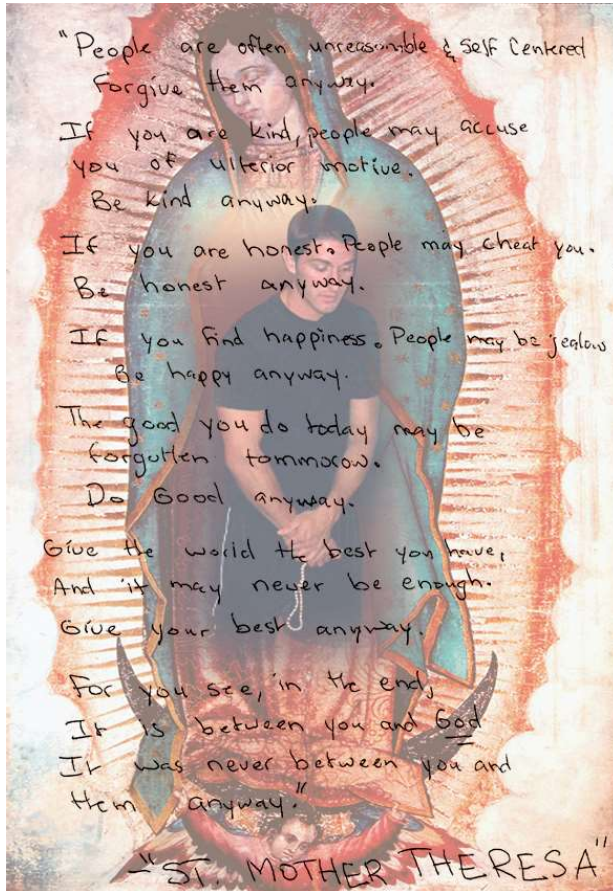 "People are often unreasonable & Self Centered
Forgive them anyway.
If you are kind, people may accuse
you of ulterior motive.
Be kind anyway.
If you are honest. People may cheat you.
Be honest anyway.
If you find happiness. People may be jealous
Be happy anyway.
The good you do today may be
forgotten tommorow.
Do Good anyway.
Give the world the best you have,
And it may never be enough.
Give your best anyway.
For you see, in the end,
It is between you and God
It was never between you and
them anyway."
-"ST. MOTHER THERESA"